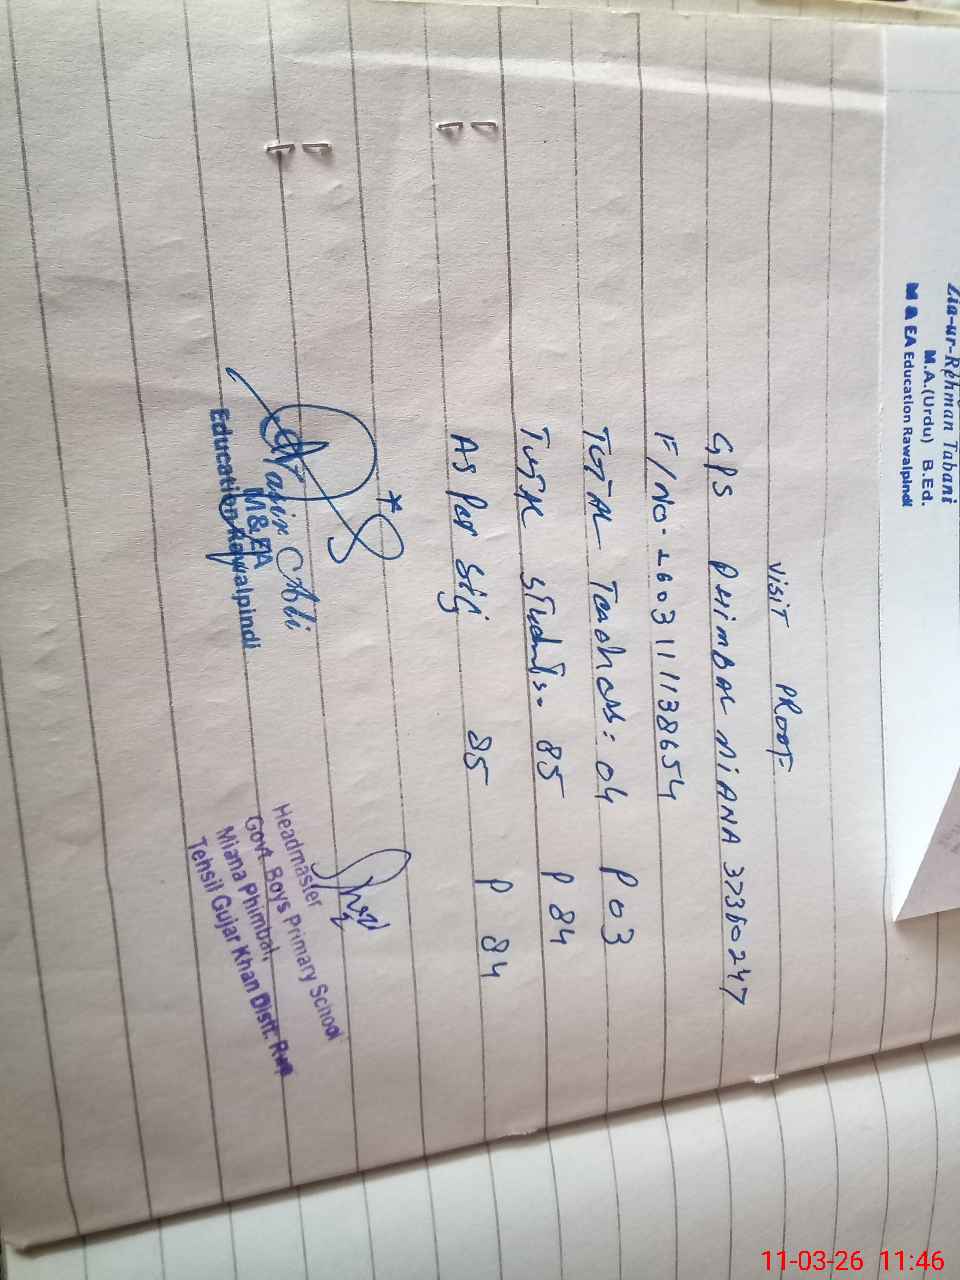 Zia-ur-Rehman Tabani
M.A.(Urdu) B.Ed.
M & EA Education Rawalpindi
VISIT PROOF
GPS PHIMBAL MIANA 37360247
F/NO- 260311138654
TOTAL Teachers: 04 P 03
Total Students:- 85 P 84
As Per SIS 85 P 84
Nasir Ali
M & EA
Education Rawalpindi
Headmaster
Govt. Boys Primary School
Miana Phimbal,
Tehsil Gujar Khan Distt. Rwp
11-03-26 11:46